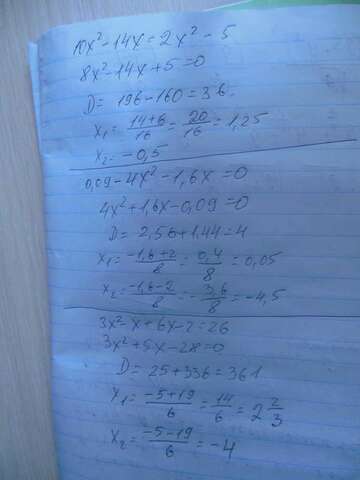 10x² - 14x = 2x² - 5
8x² - 14x + 5 = 0
D = 196 - 160 = 36.
x₁ = (14+6)/16 = 20/16 = 1,25
x₂ = -0,5
0,09 - 4x² - 1,6x = 0
4x² + 1,6x - 0,09 = 0
D = 2,56 + 1,44 = 4
x₁ = (-1,6+2)/8 = 0,4/8 = 0,05
x₂ = (-1,6-2)/8 = -3,6/8 = -4,5
3x² - x + 6x - 2 = 26
3x² + 5x - 28 = 0
D = 25 + 336 = 361
x₁ = (-5+19)/6 = 14/6 = 2 2/3
x₂ = (-5-19)/6 = -4